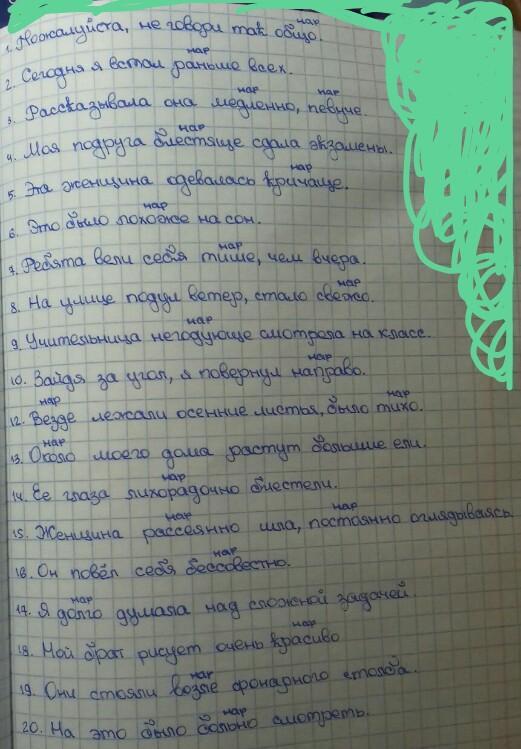 нар
1. Пожалуйста, не говори так общо.
нар
2. Сегодня я встал раньше всех.
нар нар
3. Рассказывала она медленно, певуче.
нар
4. Моя подруга блестяще сдала экзамены.
нар
5. Эта женщина одевалась кричаще.
нар
6. Это было похоже на сон.
нар
7. Ребята вели себя тише, чем вчера.
нар
8. На улице подул ветер, стало свежо.
нар
9. Учительница негодующе смотрела на класс.
нар
10. Зайдя за угол, я повернул направо.
нар нар
12. Везде лежали осенние листья, было тихо.
нар
13. Около моего дома растут большие ели.
нар
14. Ее глаза лихорадочно блестели.
нар нар
15. Женщина рассеянно шла, постоянно оглядываясь
нар
16. Он повёл себя бессовестно.
нар
17. Я долго думала над сложной задачей.
нар
18. Мой брат рисует очень красиво
нар
19. Они стояли возле фонарного столба.
нар
20. На это было больно смотреть.